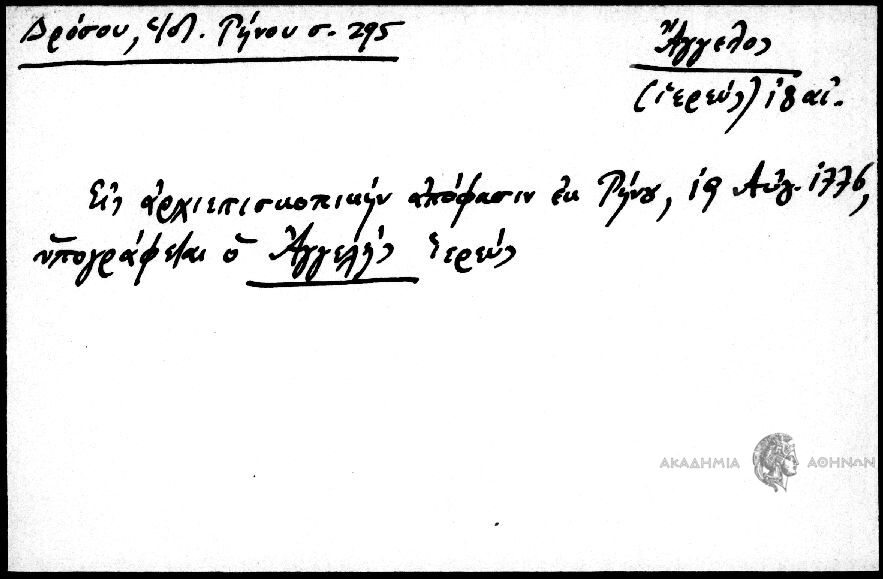 Δρόσου, ἔ/δ. Τήνου σ. 295
Ἄγγελος
(ἱερεύς) ΙΗ αἰ.
Εἰς ἀρχιεπισκοπικήν ἀπόφασιν ἐκ Τήνου, 19 Αὐγ. 1776,
ὑπογράφεται ὁ Ἀγγελής ἱερεύς
ΑΚΑΔΗΜΙΑ ΑΘΗΝΩΝ